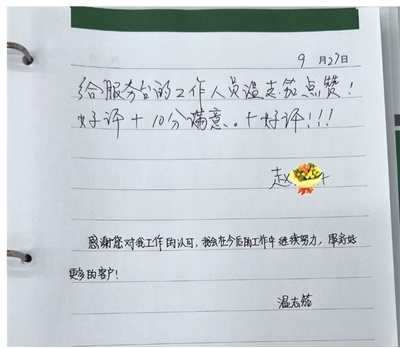 9月27日
给服务台的工作人员温志茹点赞！
好评＋10分满意。＋好评！！！
赵
感谢您对我工作的认可，我会在今后的工作中继续努力，服务好
更多的客户！
温志茹